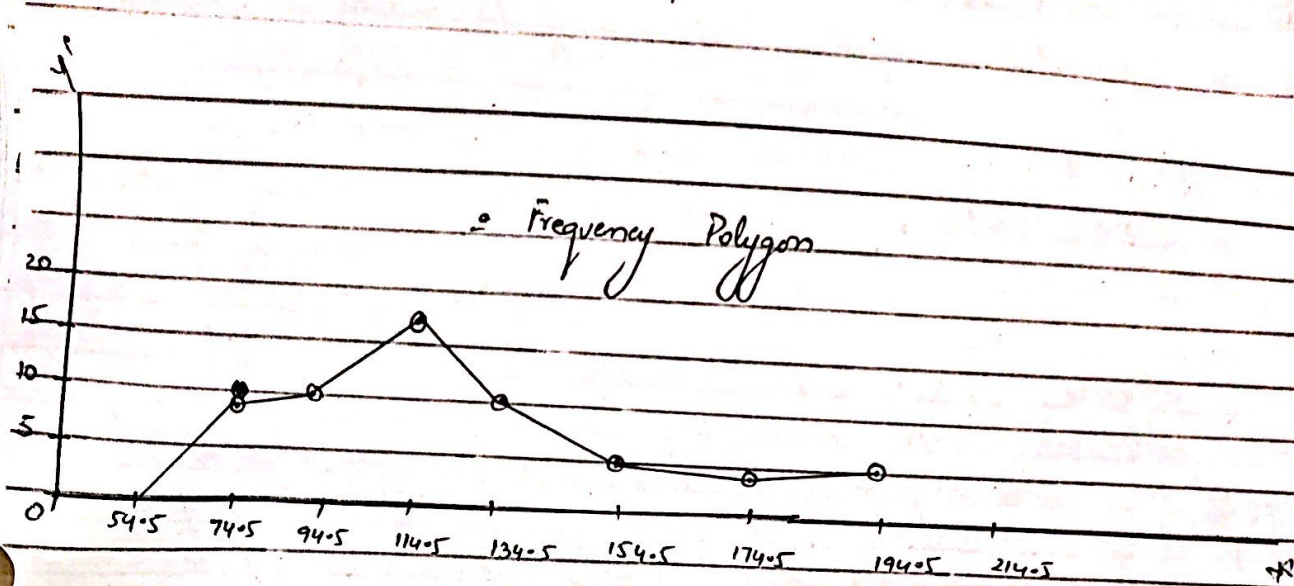 f
Frequency Polygon
20
15
10
5
0
54.5 74.5 94.5 114.5 134.5 154.5 174.5 194.5 214.5
X